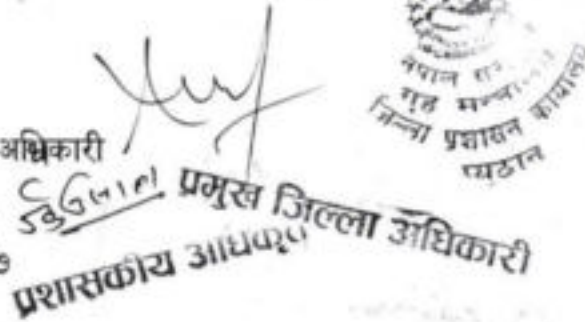 नेपाल
गृह मन्त्रालय
जिल्ला प्रशासन कार्यालय
प्यूठान
अधिकारी
प्रमुख जिल्ला अधिकारी
७
प्रशासकीय अधिकृत